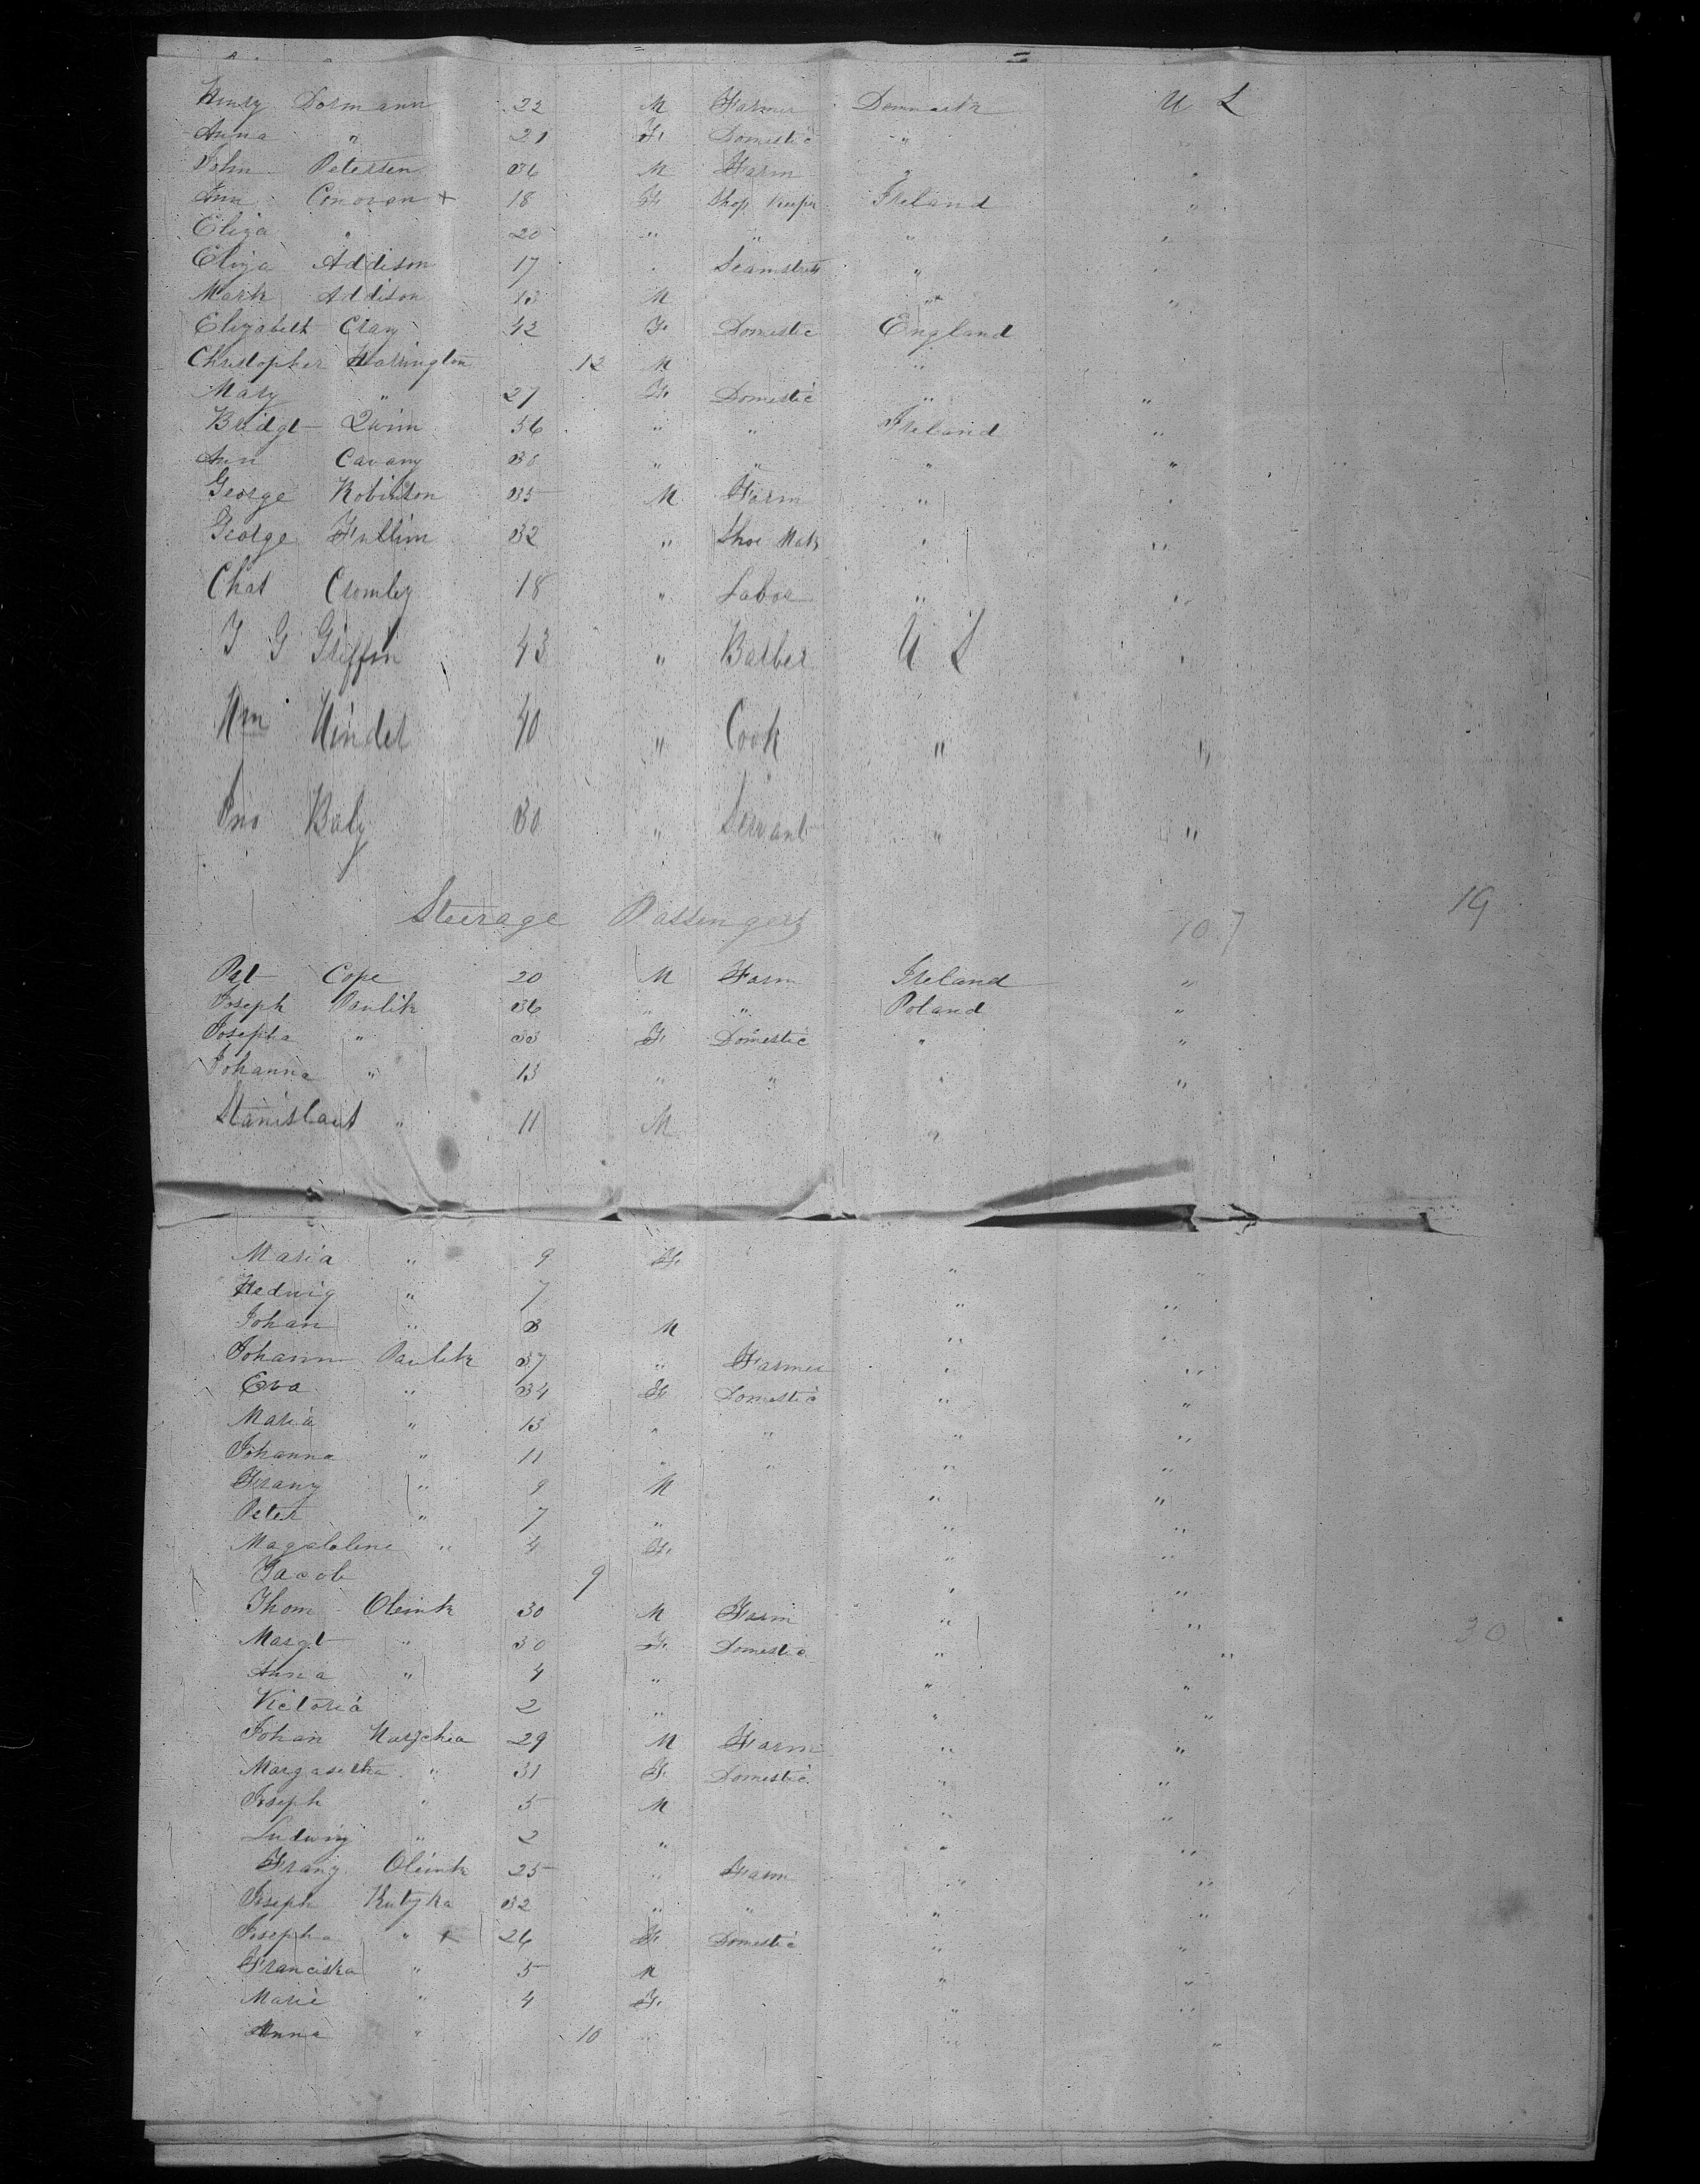 Henry Dormann 22 M Farmer Denmark U S
Anna " 21 F. Domestic "
John Petersen 36 M Farm " "
Ann Conovan + 18 F. Shop Keeper Ireland "
Eliza " 20 " " " "
Eliza Addison 17 " Seamstress " "
Mark Addison 13 M " "
Elizabeth Clay 42 F. Domestic England
Christopher Harrington 12 M "
Mary " 27 F. Domestic " "
Bridgt Quinn 56 " " Ireland "
Ann Cavany 38 " " " "
George Robinson 35 M Farm " "
George Fullim 32 " Shoe Mak " "
Chas Cromley 18 " Labor " "
J G Griffin 43 " Barber U S "
Wm 40 " Cook " "
Jno Baly 30 " Servant " "
Steerage Passengers 107 19
Pat Cope 20 M Farm Ireland "
Joseph Paulik 36 " " Poland "
Josepha " 33 F. Domestic " "
Johanna " 13 " " " "
Stanislaus " 11 M "
Maria " 9 F. " "
Hedwig " 7 " "
Johan " 3 M " "
Johann Paulik 37 " Farmer " "
Eva " 34 F Domestic " "
Maria " 13 " " " "
Johanna " 11 " " " "
Franz " 9 M " "
Peter " 7 " " "
Magdalene " 4 F. " "
Jacob 9 " "
Thom Oleink 30 M Farm " "
Margt " 30 F. Domestic " " 30
Anna " 4 " " "
Victoria 2 " " "
Johan 29 M Farm " "
Margaretha " 31 F. Domestic " "
Joseph " 5 M " "
Ludwig " 2 " " "
Franz Oleink 25 " Farm " "
Joseph Kutzka 32 " " " "
Josepha " + 26 F Domestic " "
Franciska " 5 M " "
Marie " 4 F. " "
Anna " 10 " " "